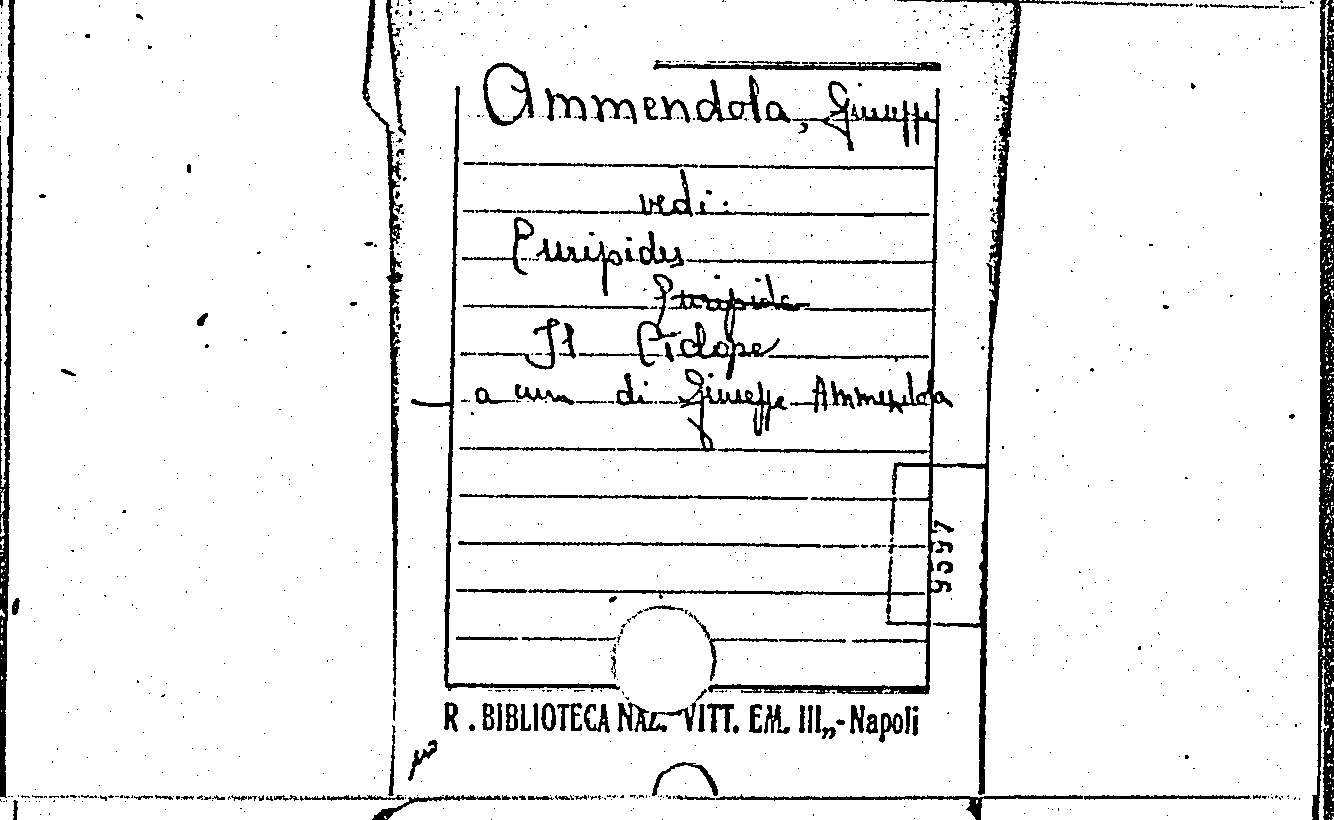 Ammendola, Giuseppe
vedi:
Euripides
Euripide
Il Ciclope
a cura di Giuseppe Ammendola
9597
R. BIBLIOTECA NAZ. VITT. EM. III„-Napoli